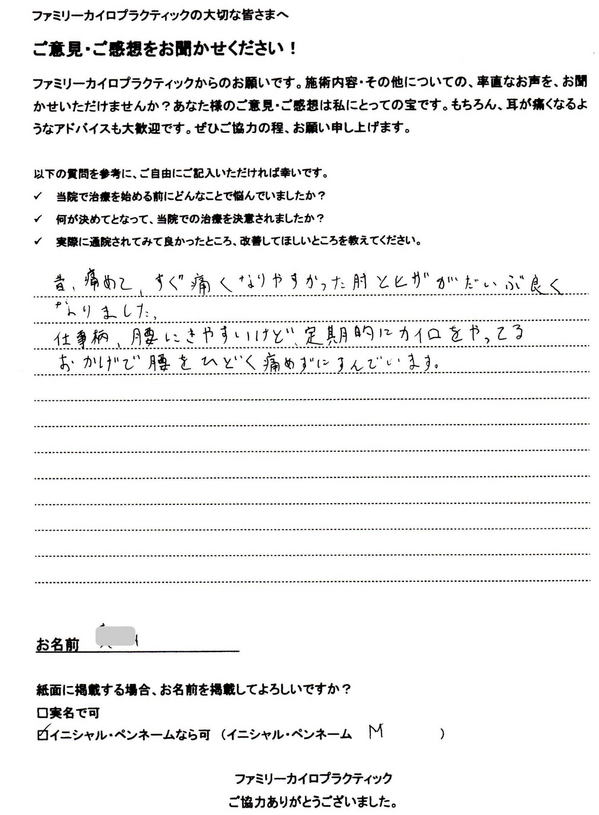 ファミリーカイロプラクティックの大切な皆さまへ
ご意見・ご感想をお聞かせください！
ファミリーカイロプラクティックからのお願いです。施術内容・その他についての、率直なお声を、お聞
かせいただけませんか？あなた様のご意見・ご感想は私にとっての宝です。もちろん、耳が痛くなるよ
うなアドバイスも大歓迎です。ぜひご協力の程、お願い申し上げます。
以下の質問を参考に、ご自由にご記入いただければ幸いです。
✓ 当院で治療を始める前にどんなことで悩んでいましたか？
✓ 何が決めてとなって、当院での治療を決意されましたか？
✓ 実際に通院されてみて良かったところ、改善してほしいところを教えてください。
昔、痛めて、すぐ痛くなりやすかった肘とヒザがだいぶ良く
なりました。
仕事柄、腰にきやすいけど、定期的にカイロをやってる
おかげで腰をひどく痛めずにすんでいます。
お名前
紙面に掲載する場合、お名前を掲載してよろしいですか？
□実名で可
☑イニシャル・ペンネームなら可 （イニシャル・ペンネーム M ）
ファミリーカイロプラクティック
ご協力ありがとうございました。